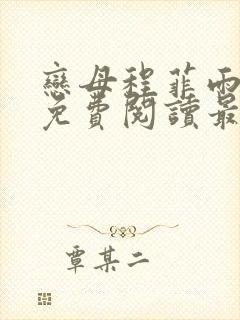 戀母程菲雨
免費閱讀最
覃某二